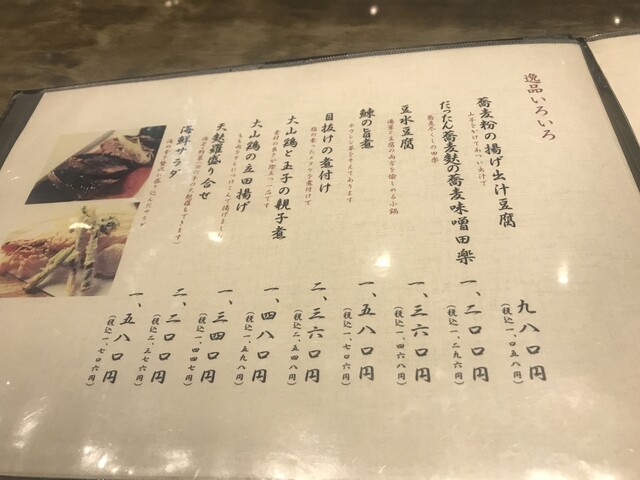 逸品いろいろ
蕎麦粉の揚げ出汁豆腐
九八〇円
(税込一、〇五八円)
だったん蕎麦麩の蕎麦味噌田楽
蕎麦尽くしの田楽
一、二〇〇円
(税込一、二九六円)
豆水豆腐
一、三六〇円
(税込一、四六八円)
鰊の旨煮
一、五八〇円
(税込一、七〇六円)
目抜けの煮付け
二、三六〇円
(税込二、五四八円)
大山鶏と玉子の親子煮
一、四八〇円
(税込一、五九八円)
大山鶏の立田揚げ
一、三四〇円
(税込一、四四七円)
天麩羅盛り合せ
二、二〇〇円
(税込二、三七六円)
海鮮サラダ
一、五八〇円
(税込一、七〇六円)